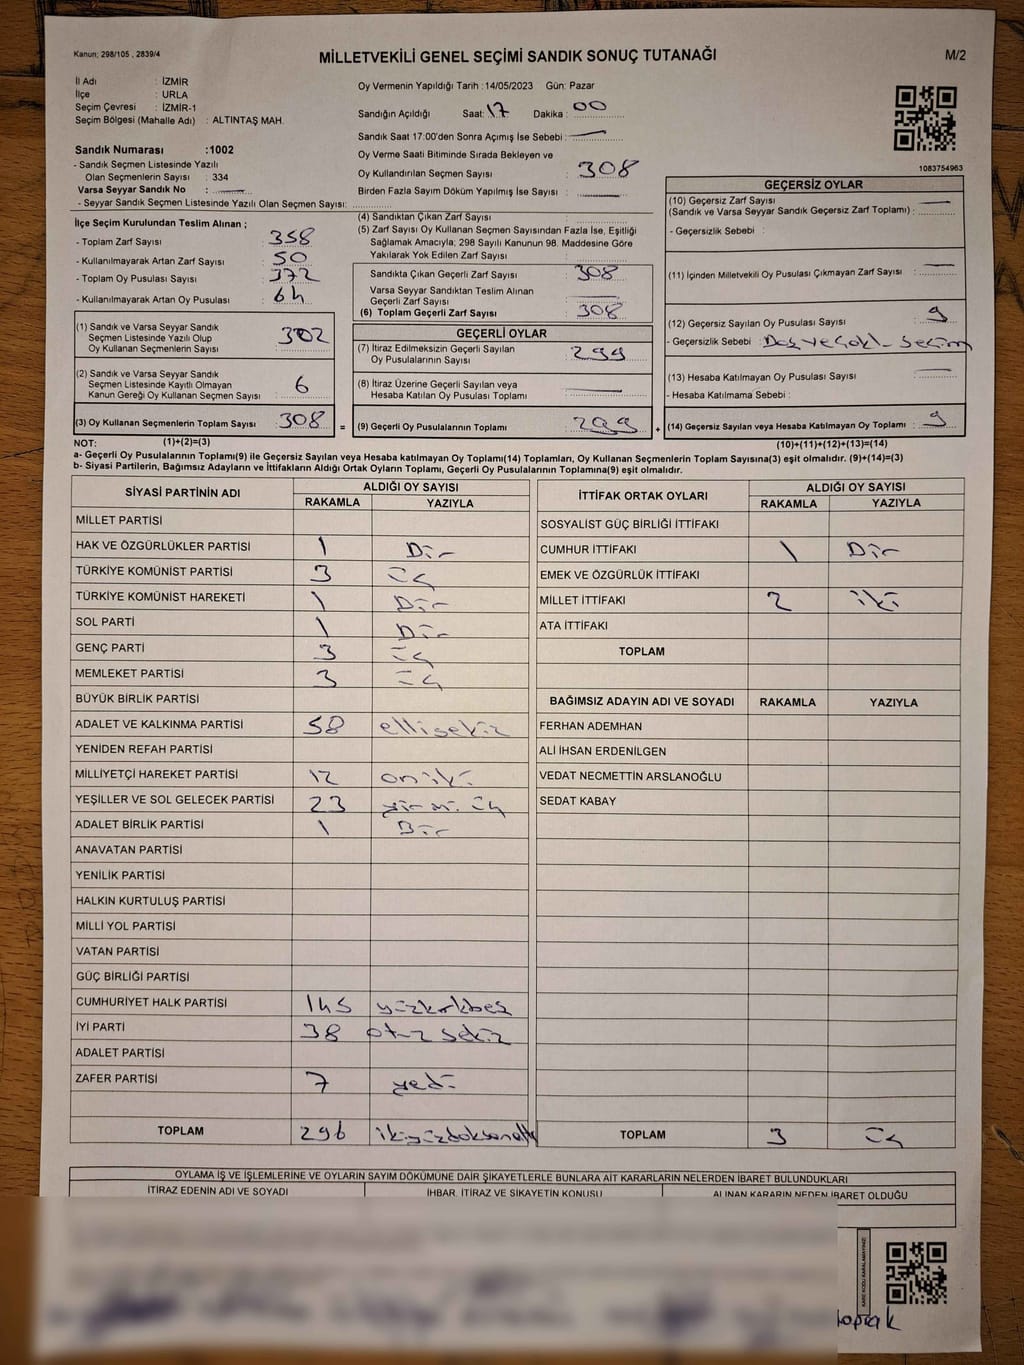 Kanun; 298/105 , 2839/4
MİLLETVEKİLİ GENEL SEÇİMİ SANDIK SONUÇ TUTANAĞI
M/2
İl Adı : İZMİR
İlçe : URLA
Seçim Çevresi : İZMİR-1
Seçim Bölgesi (Mahalle Adı) : ALTINTAŞ MAH.
Sandık Numarası :1002
- Sandık Seçmen Listesinde Yazılı
Olan Seçmenlerin Sayısı : 334
Varsa Seyyar Sandık No :
- Seyyar Sandık Seçmen Listesinde Yazılı Olan Seçmen Sayısı:
Oy Vermenin Yapıldığı Tarih :14/05/2023 Gün: Pazar
Sandığın Açıldığı Saat: 17 Dakika : 00
Sandık Saat 17:00'den Sonra Açımış İse Sebebi :
Oy Verme Saati Bitiminde Sırada Bekleyen ve
Oy Kullandırılan Seçmen Sayısı : 308
Birden Fazla Sayım Döküm Yapılmış İse Sayısı :
1083754963
İlçe Seçim Kurulundan Teslim Alınan ;
- Toplam Zarf Sayısı : 358
- Kullanılmayarak Artan Zarf Sayısı : 50
- Toplam Oy Pusulası Sayısı : 372
- Kullanılmayarak Artan Oy Pusulası : 64
(1) Sandık ve Varsa Seyyar Sandık
Seçmen Listesinde Yazılı Olup
Oy Kullanan Seçmenlerin Sayısı : 302
(2) Sandık ve Varsa Seyyar Sandık
Seçmen Listesinde Kayıtlı Olmayan
Kanun Gereği Oy Kullanan Seçmen Sayısı : 6
(3) Oy Kullanan Seçmenlerin Toplam Sayısı : 308 =
(4) Sandıktan Çıkan Zarf Sayısı :
(5) Zarf Sayısı Oy Kullanan Seçmen Sayısından Fazla İse, Eşitliği
Sağlamak Amacıyla; 298 Sayılı Kanunun 98. Maddesine Göre
Yakılarak Yok Edilen Zarf Sayısı :
Sandıkta Çıkan Geçerli Zarf Sayısı : 308
Varsa Seyyar Sandıktan Teslim Alınan
Geçerli Zarf Sayısı :
(6) Toplam Geçerli Zarf Sayısı : 308
GEÇERLİ OYLAR
(7) İtiraz Edilmeksizin Geçerli Sayılan
Oy Pusulalarının Sayısı : 299
(8) İtiraz Üzerine Geçerli Sayılan veya
Hesaba Katılan Oy Pusulası Toplamı :
(9) Geçerli Oy Pusulalarının Toplamı : 299 +
GEÇERSİZ OYLAR
(10) Geçersiz Zarf Sayısı
(Sandık ve Varsa Seyyar Sandık Geçersiz Zarf Toplamı) :
- Geçersizlik Sebebi :
(11) İçinden Milletvekili Oy Pusulası Çıkmayan Zarf Sayısı :
(12) Geçersiz Sayılan Oy Pusulası Sayısı : 9
- Geçersizlik Sebebi : Boş ve Çokl- Seçim
(13) Hesaba Katılmayan Oy Pusulası Sayısı :
- Hesaba Katılmama Sebebi :
(14) Geçersiz Sayılan veya Hesaba Katılmayan Oy Toplamı : 9
NOT: (1)+(2)=(3) (10)+(11)+(12)+(13)=(14)
a- Geçerli Oy Pusulalarının Toplamı(9) ile Geçersiz Sayılan veya Hesaba Katılmayan Oy Toplamı(14) Toplamları, Oy Kullanan Seçmenlerin Toplam Sayısına(3) eşit olmalıdır. (9)+(14)=(3)
b- Siyasi Partilerin, Bağımsız Adayların ve İttifakların Aldığı Ortak Oyların Toplamı, Geçerli Oy Pusulalarının Toplamına(9) eşit olmalıdır.
SİYASİ PARTİNİN ADI ALDIĞI OY SAYISI
RAKAMLA YAZIYLA
MİLLET PARTİSİ
HAK VE ÖZGÜRLÜKLER PARTİSİ 1 Bir
TÜRKİYE KOMÜNİST PARTİSİ 3 üç
TÜRKİYE KOMÜNİST HAREKETİ 1 Bir
SOL PARTİ 1 Bir
GENÇ PARTİ 3 üç
MEMLEKET PARTİSİ 3 üç
BÜYÜK BİRLİK PARTİSİ
ADALET VE KALKINMA PARTİSİ 58 ellisekiz
YENİDEN REFAH PARTİSİ
MİLLİYETÇİ HAREKET PARTİSİ 12 oniki
YEŞİLLER VE SOL GELECEK PARTİSİ 23 yirmi üç
ADALET BİRLİK PARTİSİ 1 Bir
ANAVATAN PARTİSİ
YENİLİK PARTİSİ
HALKIN KURTULUŞ PARTİSİ
MİLLİ YOL PARTİSİ
VATAN PARTİSİ
GÜÇ BİRLİĞİ PARTİSİ
CUMHURİYET HALK PARTİSİ 145 yüzkırkbeş
İYİ PARTİ 38 otuz sekiz
ADALET PARTİSİ
ZAFER PARTİSİ 7 yedi
TOPLAM 296 ikiyüzdoksanaltı
İTTİFAK ORTAK OYLARI ALDIĞI OY SAYISI
RAKAMLA YAZIYLA
SOSYALİST GÜÇ BİRLİĞİ İTTİFAKI
CUMHUR İTTİFAKI 1 Bir
EMEK VE ÖZGÜRLÜK İTTİFAKI
MİLLET İTTİFAKI 2 iki
ATA İTTİFAKI
TOPLAM
BAĞIMSIZ ADAYIN ADI VE SOYADI RAKAMLA YAZIYLA
FERHAN ADEMHAN
ALİ İHSAN ERDENİLGEN
VEDAT NECMETTİN ARSLANOĞLU
SEDAT KABAY
TOPLAM 3 üç
OYLAMA İŞ VE İŞLEMLERİNE VE OYLARIN SAYIM DÖKÜMÜNE DAİR ŞİKAYETLERLE BUNLARA AİT KARARLARIN NELERDEN İBARET BULUNDUKLARI
İTİRAZ EDENİN ADI VE SOYADI İHBAR, İTİRAZ VE ŞİKAYETİN KONUSU ALINAN KARARIN NEDEN İBARET OLDUĞU
KARE KODU KARALAMAYINIZ!
toprak